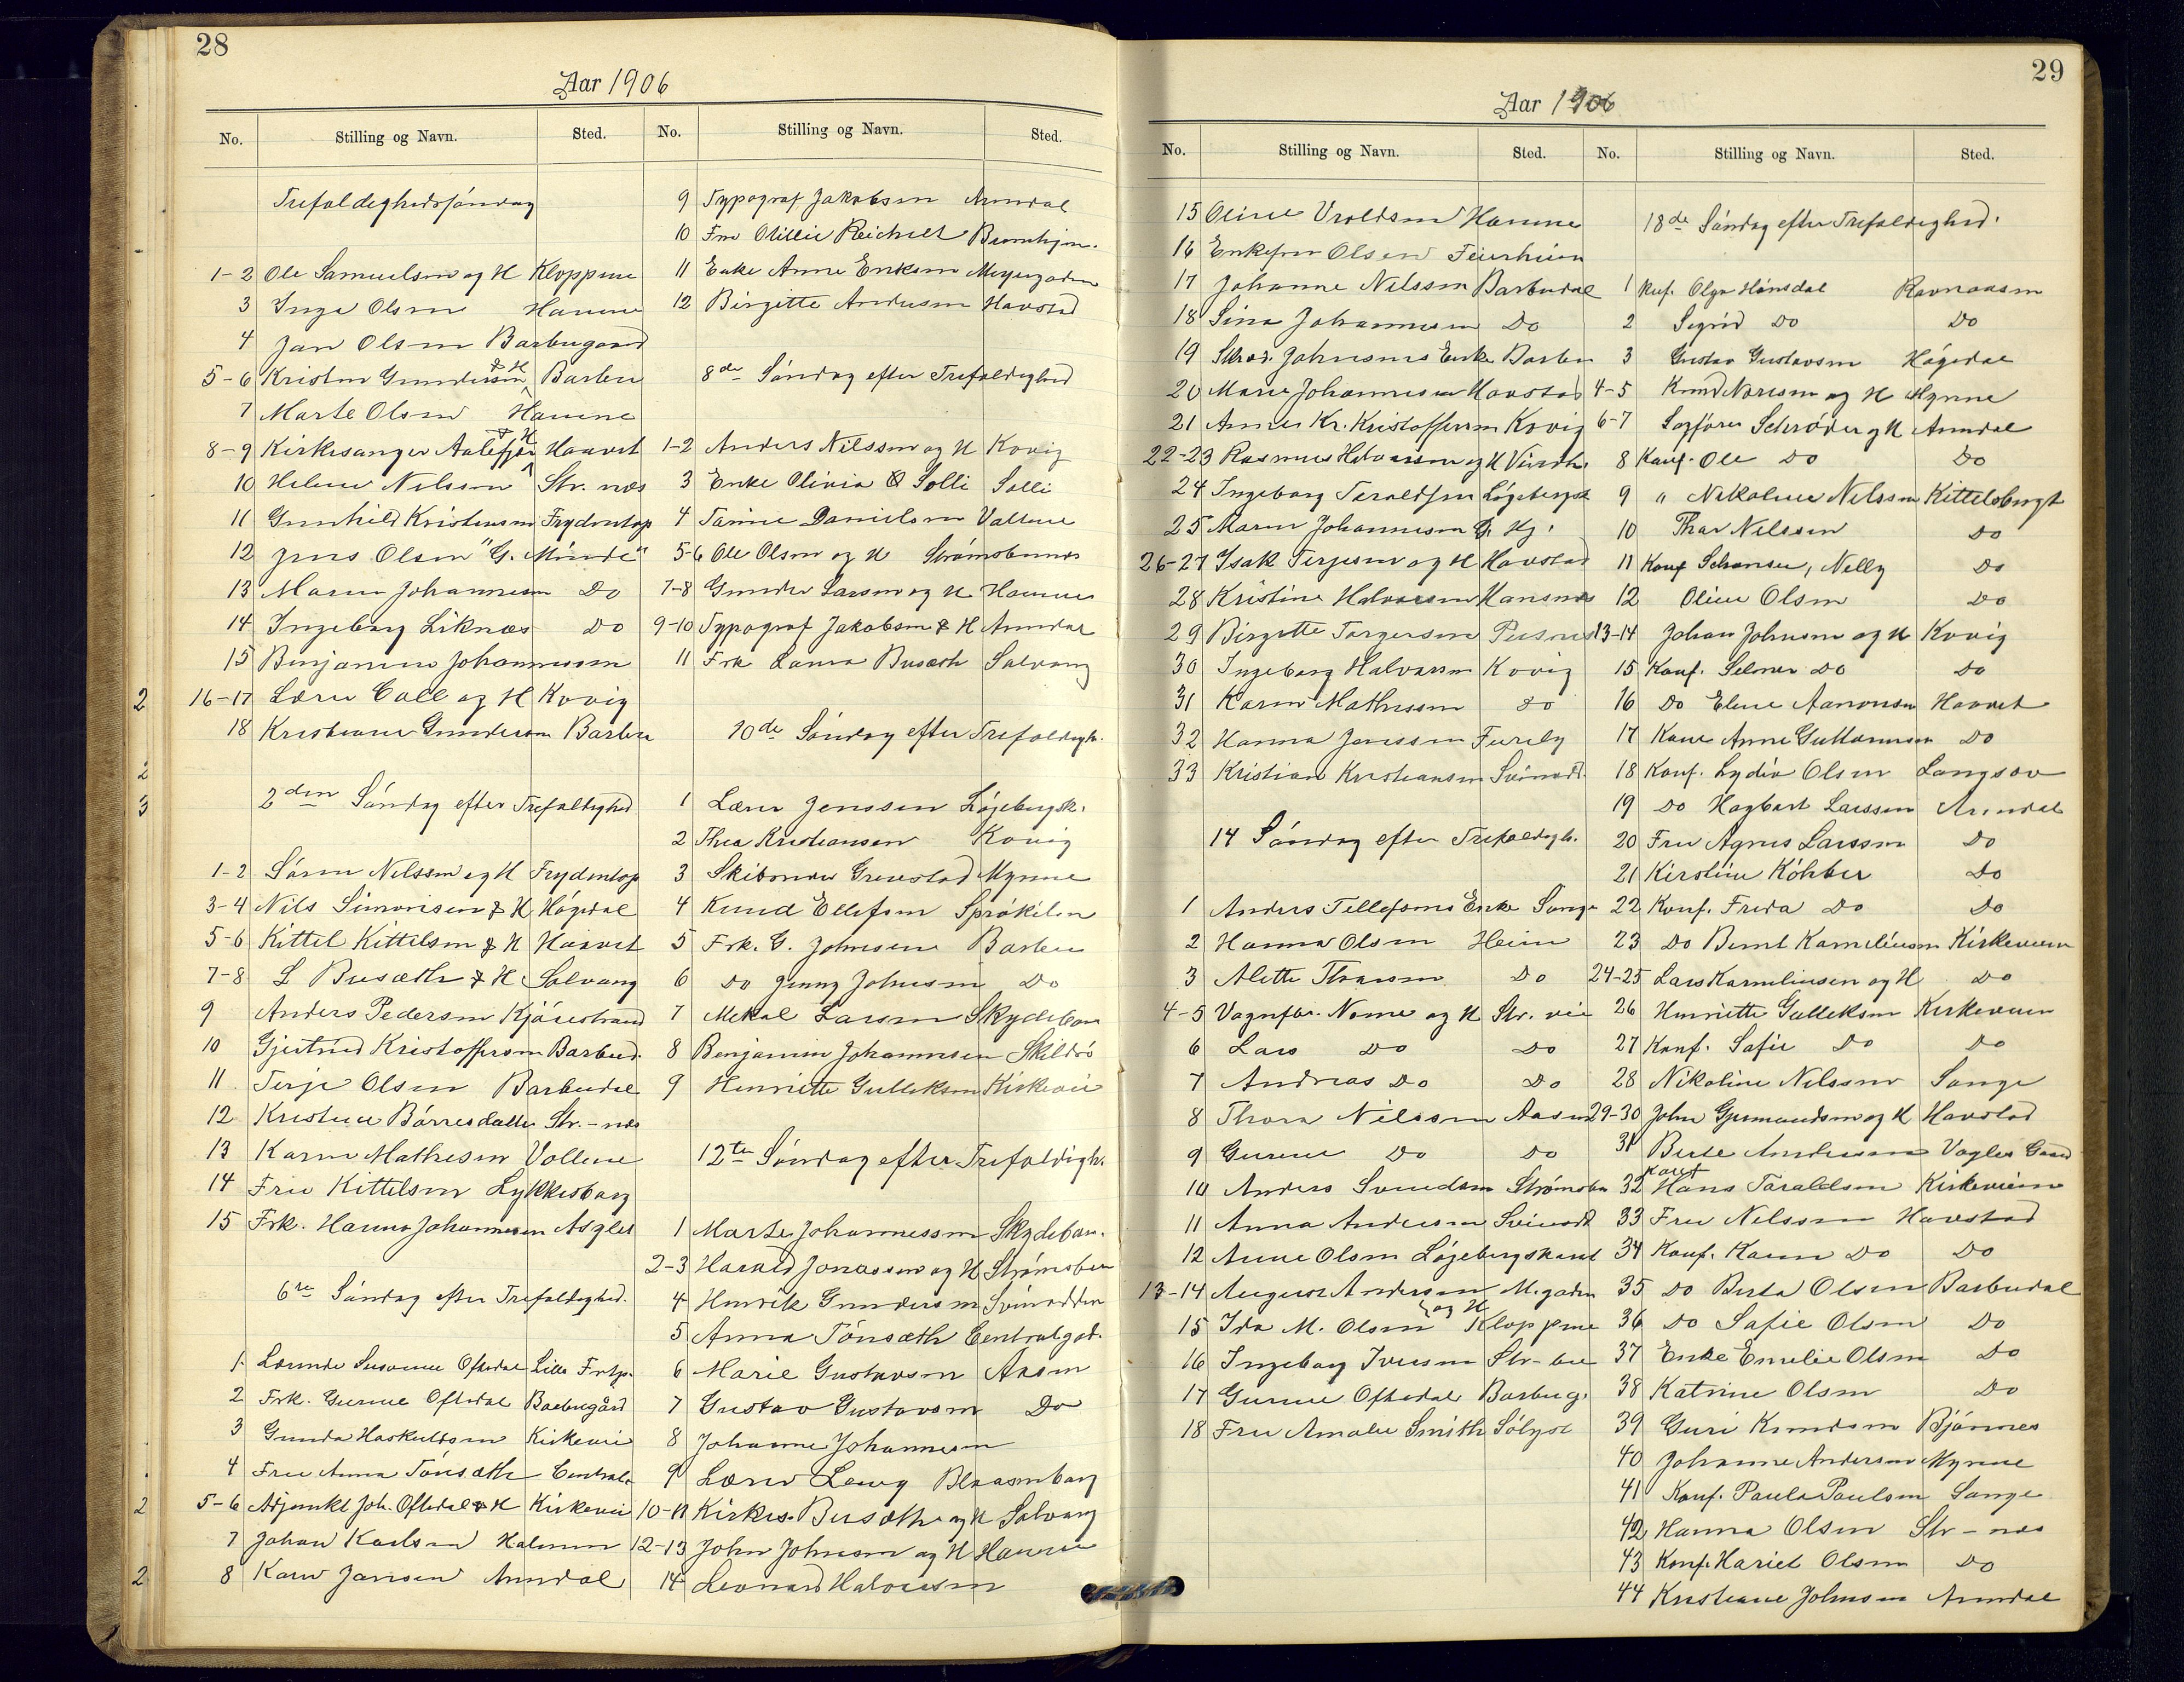 28
Aar 1906
No. Stilling og Navn. Sted.
Trefoldighedssöndag
1-2 Ole Samuelsen og H Kloppene
3 Inga Olsen Havene
4 Jan Olsen Barbugaard
5-6 Kristen Gundersen & H Barbu
7 Marte Olsen Havene
8-9 Kirkesanger Aalefjær & H Haavet
10 Helene Nilssen Str. næs
11 Gunhild Kristensen Frydentop
12 Jens Olsen "G. Minde"
13 Maren Johannesen Do
14 Ingeborg Liknæs Do
15 Benjamin Johannessen
2 16-17 Lærer Call og H Kovig
18 Kristiane Gundersen Barbu
2
3 2den Söndag efter Trefoldighed
1-2 Sören Nilssen og H Frydentop
3-4 Nils Simonsen & H Högedal
5-6 Kittel Kittelsen & H Haavet
7-8 L Busæth & H Solvang
9 Anders Pedersen Kjörestrand
10 Gjertrud Kristoffersen Barbud.
11 Terje Olsen Barbudal
12 Kristine Börresdatter Str.-næs
13 Karen Mathesen Vollene
14 Fru Kittelsen Lykkesborg
15 Frk. Hanna Johannesen
6te Söndag efter Trefoldighed.
1 Susanne Oftedal Lille
2 Frk. Gurine Oftedal Barbugård
3 Gunda Haskuldsen Kirkevei
4 Fru Anna Tönsæth Central
2 5-6 Adjunkt Joh. Oftedal & H Kirkevei
7 Johan Karlsen
2 8 Karen Jansen Arendal
No. Stilling og Navn. Sted.
9 Typograf Jakobsen Arendal
10 Fru Otillie Reichelt Barnehjem.
11 Enke Anne Eriksen Meyergaden
12 Birgitte Andersen Havstad
8de Söndag efter Trefoldighed
1-2 Anders Nilssen og H Kovig
3 Enke Olivia Solli Solli
4 Tarine Danielsen Vollene
5-6 Ole Olsen og H Strömsbunes
7-8 Gunder Larsen og H Havene
9-10 Typograf Jakobsen & H Arendal
11 Frk Laura Busæth Solvang
10de Söndag efter Trefoldigh.
1 Lærer Jenssen Lögebergsk.
2 Thea Kristiansen Kovig
3 Skibsreder Grevstad Mynne
4 Knud Ellefsen Sprökilen
5 Frk. G. Johnsen Barbu
6 Do Jenny Johnsen Do
7 Mekal Larsen Skydeban
8 Benjamin Johannesen Skilsö
9 Henriette Gulleksen Kirkevei
12te Söndag efter Trefoldigh.
1 Marte Johannessen Skydeban.
2-3 Harald Jonassen og H Strömsbu
4 Henrik Gundersen Svinodden
5 Anna Tönsæth Centralgad.
6 Marie Gustavsen Aasen
7 Gustav Gustavsen Do
8 Johanne Johannesen
9 Lærer Levy Blaasenborg
10-11 Kirkes. Busæth og H Solvang
12-13 John Johnsen og H Havene
14 Leonard Halvorsen
29
Aar 1906
No. Stilling og Navn. Sted.
15 Oline Vroldsen Havene
16 Enkefru Olsen Feierheien
17 Johanne Nilssen Barbudal
18 Sina Johannesen Do
19 Skred. Johnsens Enke Barbu
20 Marie Johannesen Havstad
21 Anne Kr. Kristoffersen Kovig
22-23 Rasmus Halvorsen og H Vindh.
24 Ingeborg Taraldsen Lögebergsk
25 Maren Johannesen G. Hj.
26-27 Isak Terjesen og H Havstad
28 Kristine Halvorsen Hansnæs
29 Birgitte Torgersen
30 Ingeborg Halvorsen Kovig
31 Karen Mathesen do
32 Hanna Jenssen Furuly
33 Kristian Kristiansen Svinodd.
14 Söndag efter Trefoldigh.
1 Anders Tellefsens Enke Songe
2 Hanna Olsen Heien
3 Alette Thorsen Do
4-5 Vognfbr. Nome og H Str. vei
6 Lars Do Do
7 Andreas Do Do
8 Thora Nilssen Aasen
9 Gurine Do Do
10 Anders Svendsen Strömsbu
11 Anna Andersen Svinodd
12 Anne Olsen Lögebergskaret
13-14 August Andersen og H M.gaden
15 Ida M. Olsen Kloppene
16 Ingeborg Iversen Str-bu
17 Gurine Oftedal Barbug.
18 Fru Amalie Smith Sölyst
No. Stilling og Navn. Sted.
18de Söndag efter Trefoldighed.
1 Knf. Olga Hönsdal Ravnaasen
2 Sigrid Do Do
3 Gustav Gustavsen Högedal
4-5 Knud Noresen og H Mynne
6-7 Sagförer Schröder og H Arendal
8 Konf. Ole Do Do
9 " Nikoline Nilssen Kittelsbugt
10 Thor Nilssen Do
11 Konf Schansen, Nelly Do
12 Oline Olsen Do
13-14 Johan Johnsen og H Kovig
15 Konf. Selmer Do Do
16 Do Eline Aanonsen Haavet
17 Kone Anne Guttormsen Do
18 Konf. Lydia Olsen Langsæv
19 Do Hagbart Larssen Arendal
20 Fru Agnes Larssen Do
21 Kirstine Köhler Do
22 Konf. Frida Do Do
23 Do Bernt Karneliusen Kirkeveien
24-25 Lars Karneliusen og H Do
26 Henriette Gulleksen Kirkeveien
27 Konf. Sofie Do Do
28 Nikoline Nilssen Songe
29-30 John Gjermundsen og H Havstad
31 Berte Andersen Vogles Gaard
32 Konf Hans Taraldsen Kirkeveien
33 Fru Nilssen Havstad
34 Konf. Karen Do Do
35 Do Berta Olsen Barbudal
36 Do Sofie Olsen Do
37 Enke Emelie Olsen Do
38 Katrine Olsen Do
39 Guri Knudsen Björnnes
40 Johanne Andersen Mynne
41 Konf. Paula Paulsen Songe
42 Hanna Olsen Str-næs
43 Konf. Hariet Olsen Do
44 Kristiane Johnsen Arendal